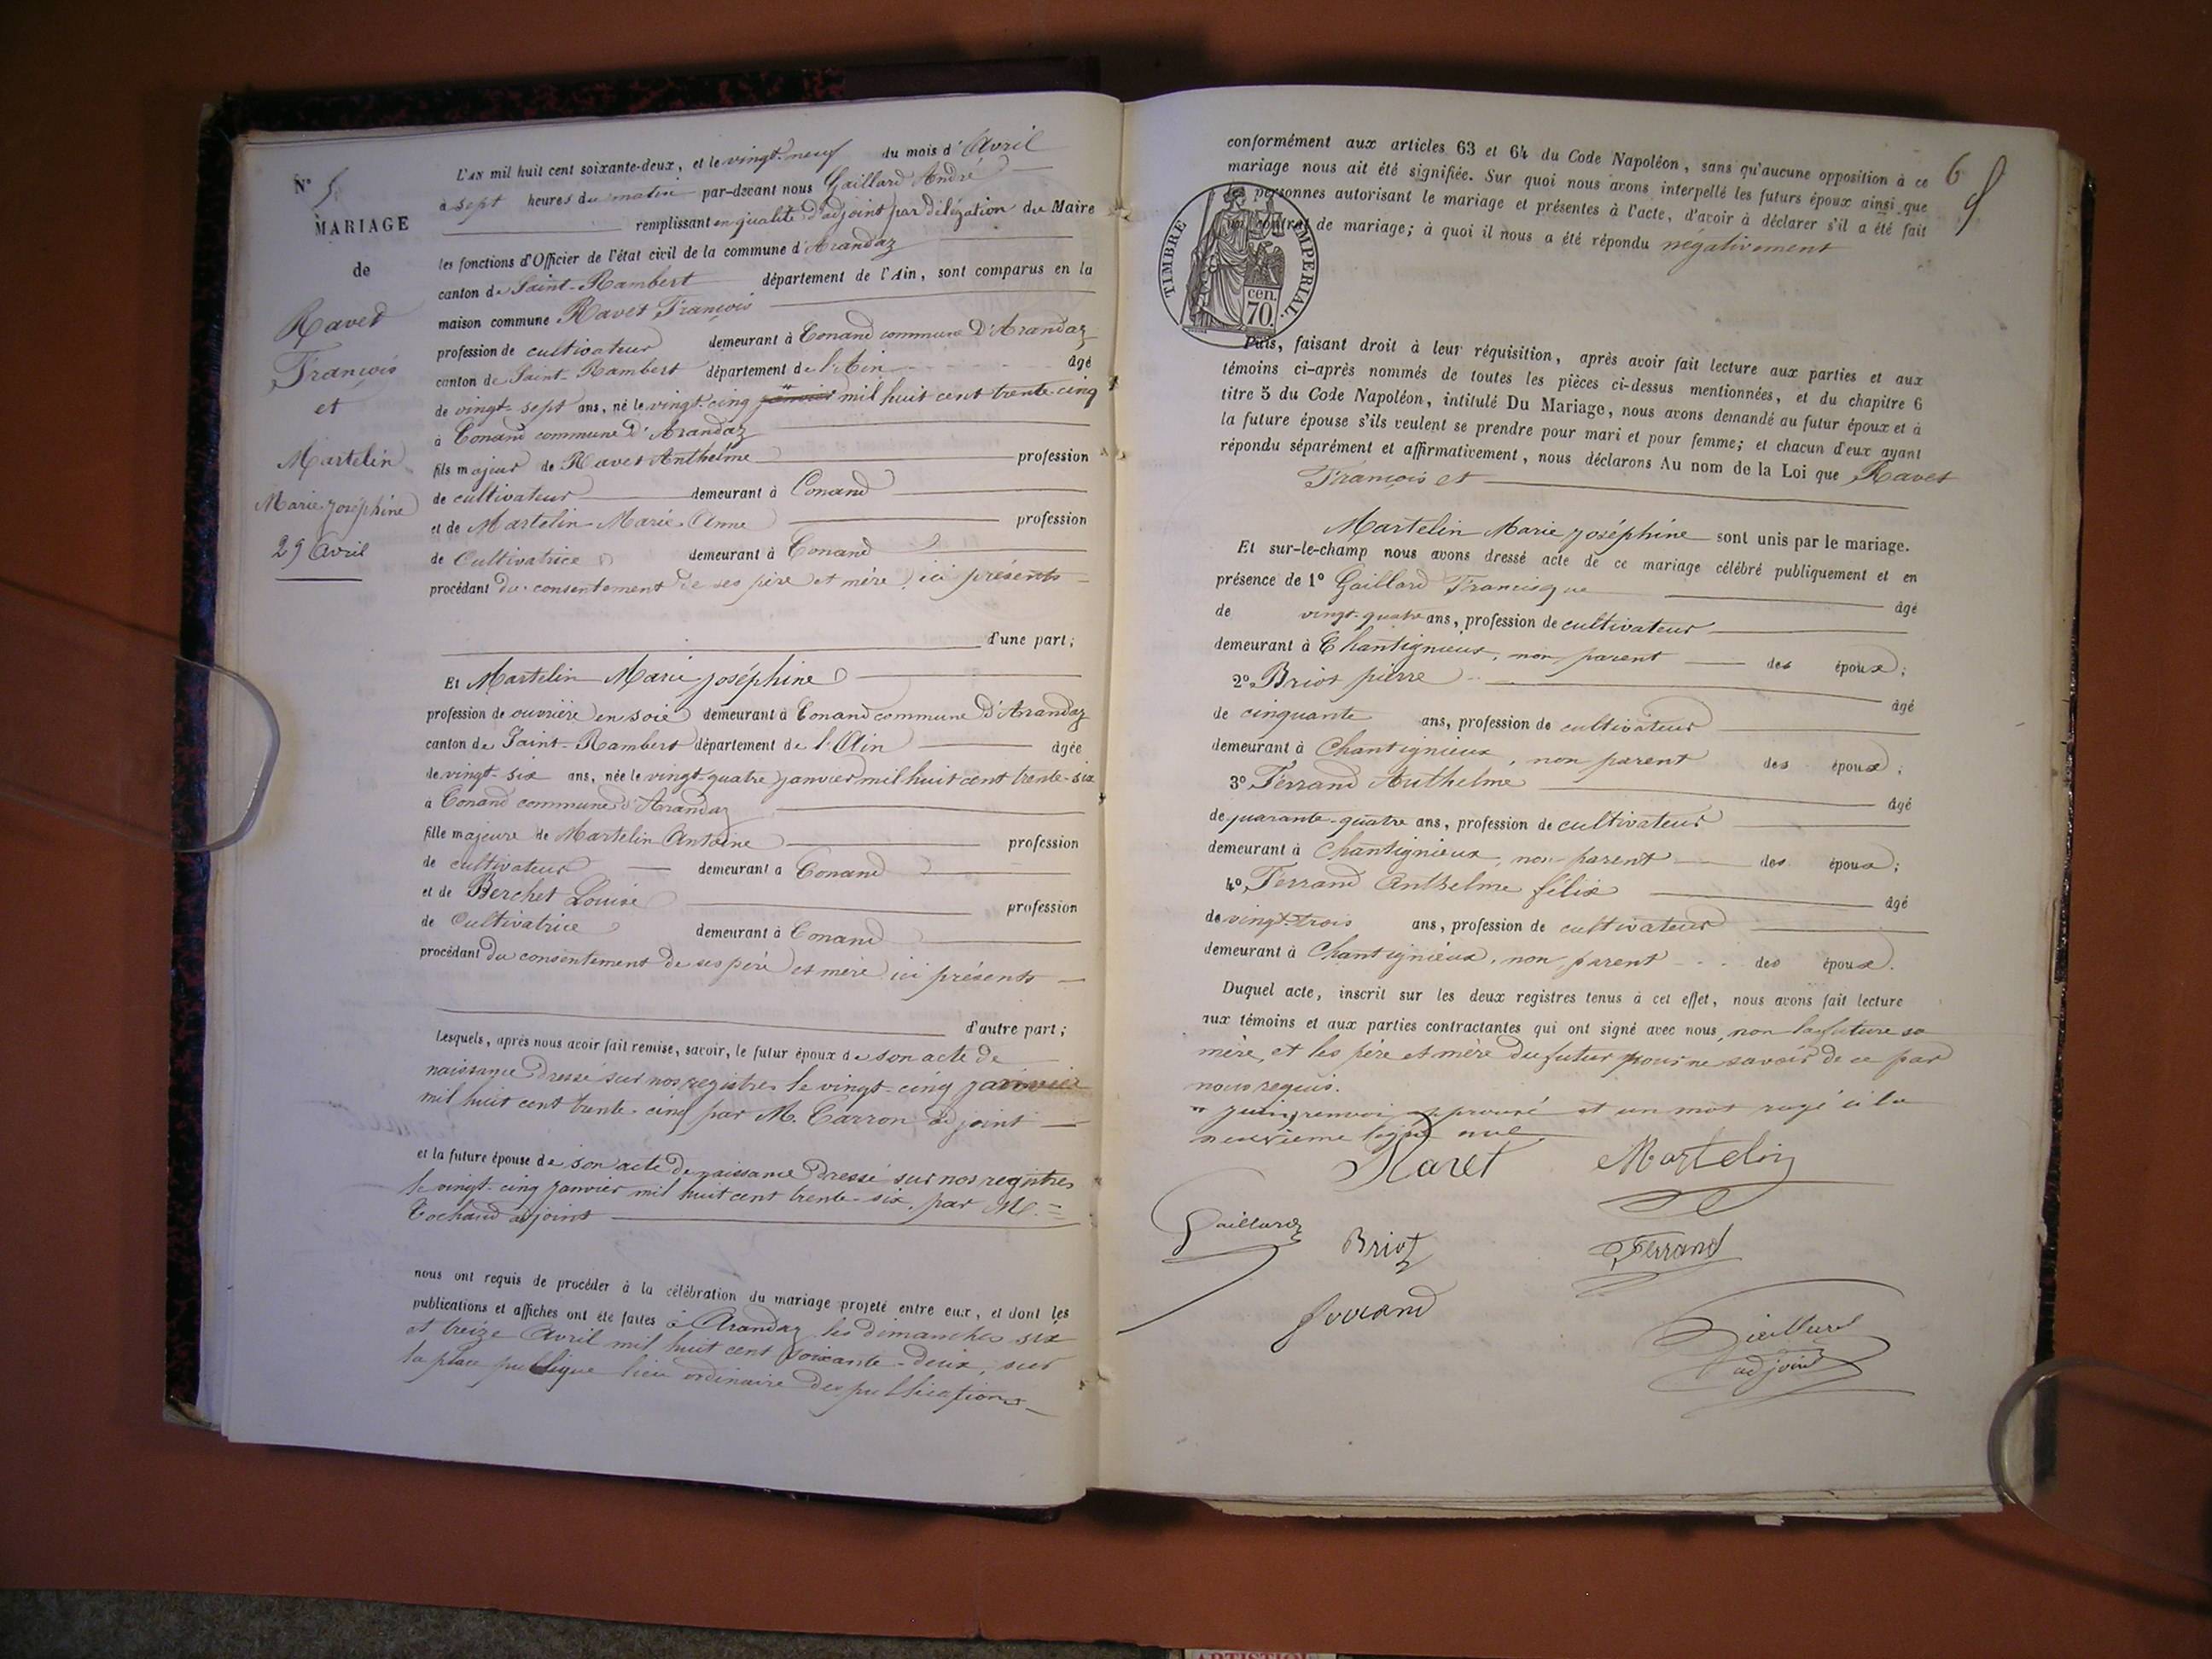 N° 5
MARIAGE
de
Ravet
François
et
Martelin
Marie joséphine
29 Avril
L'AN mil huit cent soixante-deux, et le vingt-neuf du mois d'Avril
à sept heures du matin par-devant nous Gaillard André
remplissant en qualité d'adjoint par délégation du Maire
les fonctions d'Officier de l'état civil de la commune d'Arandaz
canton de Saint-Rambert département de l'Ain, sont comparus en la
maison commune Ravet François
profession de cultivateur demeurant à Conand commune D'Arandaz
canton de Saint-Rambert département de l'Ain âgé
de vingt-sept ans, né le vingt-cinq janvier " mil huit cent trente-cinq
à Conand commune D'Arandaz
fils majeur de Ravet Anthelme profession
de cultivateur demeurant à Conand
et de Martelin Marie Anne profession
de Cultivatrice demeurant à Conand
procédant du consentement de ses père et mère ici présents
d'une part;
Et Martelin Marie joséphine
profession de ouvrière en soie demeurant à Conand commune D'Arandaz
canton de Saint-Rambert département de l'Ain âgée
de vingt-six ans, née le vingt-quatre janvier mil huit cent trente-six
à Conand commune d'Arandaz
fille majeure de Martelin Antoine profession
de cultivateur demeurant à Conand
et de Berchet Louise profession
de Cultivatrice demeurant à Conand
procédant du consentement de ses père et mère ici présents
d'autre part;
Lesquels, après nous avoir fait remise, savoir, le futur époux de son acte de
naissance dressé sur nos registres le vingt-cinq janvier
mil huit cent trente-cinq par M. Carron adjoint
et la future épouse de son acte de naissance dressé sur nos registres
le vingt-cinq janvier mil huit cent trente-six, par M.
Cochaud adjoint
nous ont requis de procéder à la célébration du mariage projeté entre eux, et dont les
publications et affiches ont été faites à Arandaz les dimanches six
et treize Avril mil huit cent soixante-deux, sur
la place publique lieu ordinaire des publications
6
conformément aux articles 63 et 64 du Code Napoléon, sans qu'aucune opposition à ce
mariage nous ait été signifiée. Sur quoi nous avons interpellé les futurs époux ainsi que
les personnes autorisant le mariage et présentes à l'acte, d'avoir à déclarer s'il a été fait
un contrat de mariage; à quoi il nous a été répondu négativement
TIMBRE IMPERIAL.
cen.
70.
Puis, faisant droit à leur réquisition, après avoir fait lecture aux parties et aux
témoins ci-après nommés de toutes les pièces ci-dessus mentionnées, et du chapitre 6
titre 5 du Code Napoléon, intitulé Du Mariage, nous avons demandé au futur époux et à
la future épouse s'ils veulent se prendre pour mari et pour femme; et chacun d'eux ayant
répondu séparément et affirmativement, nous déclarons Au nom de la Loi que Ravet
François et
Martelin Marie joséphine sont unis par le mariage.
Et sur-le-champ nous avons dressé acte de ce mariage célébré publiquement et en
présence de 1° Gaillard Francisque âgé
de vingt-quatre ans, profession de cultivateur
demeurant à Chantignieux, non parent des époux;
2° Briot pierre âgé
de cinquante ans, profession de cultivateur
demeurant à Chantignieux, non parent des époux;
3° Ferrand Anthelme âgé
de quarante-quatre ans, profession de cultivateur
demeurant à Chantignieux, non parent des époux;
4° Ferrand Anthelme félix âgé
de vingt-trois ans, profession de cultivateur
demeurant à Chantignieux, non parent des époux.
Duquel acte, inscrit sur les deux registres tenus à cet effet, nous avons fait lecture
aux témoins et aux parties contractantes qui ont signé avec nous, non la future sa
mère, et les père et mère du futur pour ne savoir de ce par
nous requis.
" juin, renvoi approuvé et un mot rayé à la
neuvième ligne nul
Ravet Martelin
Gaillard Briot Ferrand
Ferrand
Gaillard
adjoint